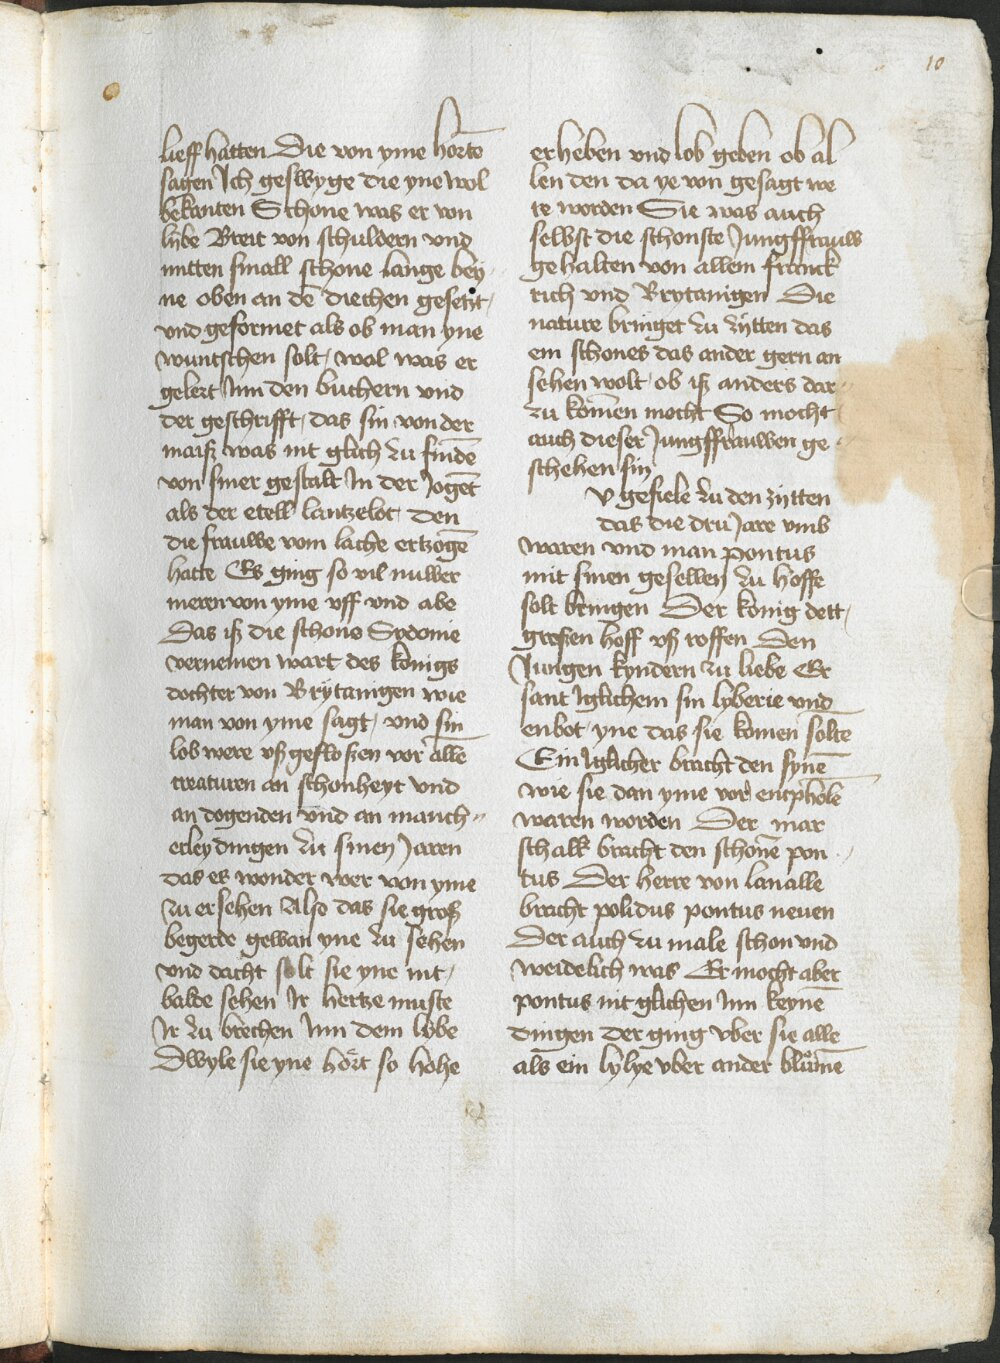 10
lieff hatten Die von yme horte
sagen Ich geswyge die yne wol
bekanten Schone was er von
lybe Breit von schuldern vnd
mitten small schone lange bey
ne oben an de diechen gesetzt
vnd geformet als ob man yne
wuntschen solt, wol was er
gelert Inn den buchern vnd
der geschrifft, das sin von der
maiß was nit glich zu finde
von siner gestalt In der Joget
als der etell lantzelot den
die frauwe vom lache ertzoge
hatte Es ging so vil nuwer
meren von yme vff vnd abe
Das iß die schone Sydonie
vernemen wart des konigs
dochter von Brytanigen wie
man von yme sagt, vnd sin
lob were vß geflossen vor alle
creaturen an schonheyt vnd
an dogenden vnd an manch
erley dingen zu sinen Jaren
das es wonder wer von yme
zu ersehen Also das sie groß
begerde gewan yne zu sehen
vnd dacht solt sie yne nit
balde sehen Ir hertze muste
Ir zu brechen Inn dem lybe
Dwyle sie yne hort so hohe
erheben vnd lob geben ob al
len den da ye von gesagt we
re worden Sie was auch
selbst die schonste Jungffrauw
gehalten von allem franck
rich vnd Brytanigen Die
nature bringet zu zytten das
ein schones das ander gern an
sehen wolt, ob iß anders dar
zu komen mocht So mocht
auch dieser Jungffrauwen ge
schehen sin
v gefiele zu den zytten
das die dru Jare vmb
waren vnd man pontus
mit sinen gesellen zu hoffe
solt bringen Der konig dett
großen hoff vß roffen Den
Jungen kyndern zu liebe Er
sant Iglichem sin lyberie vnd
enbot yne das sie komen solte
Ein Iglicher bracht den syne
wie sie dan yme vor entphole
waren worden Der mar
schalk bracht den schone pon
tus Der herre von lanalle
bracht polidus pontus neuen
Der auch zu male schon vnd
weidelich was Er mocht aber
pontus nit glichen Inn keyne
dingen der ging vber sie alle
als ein lylye vber ander blume